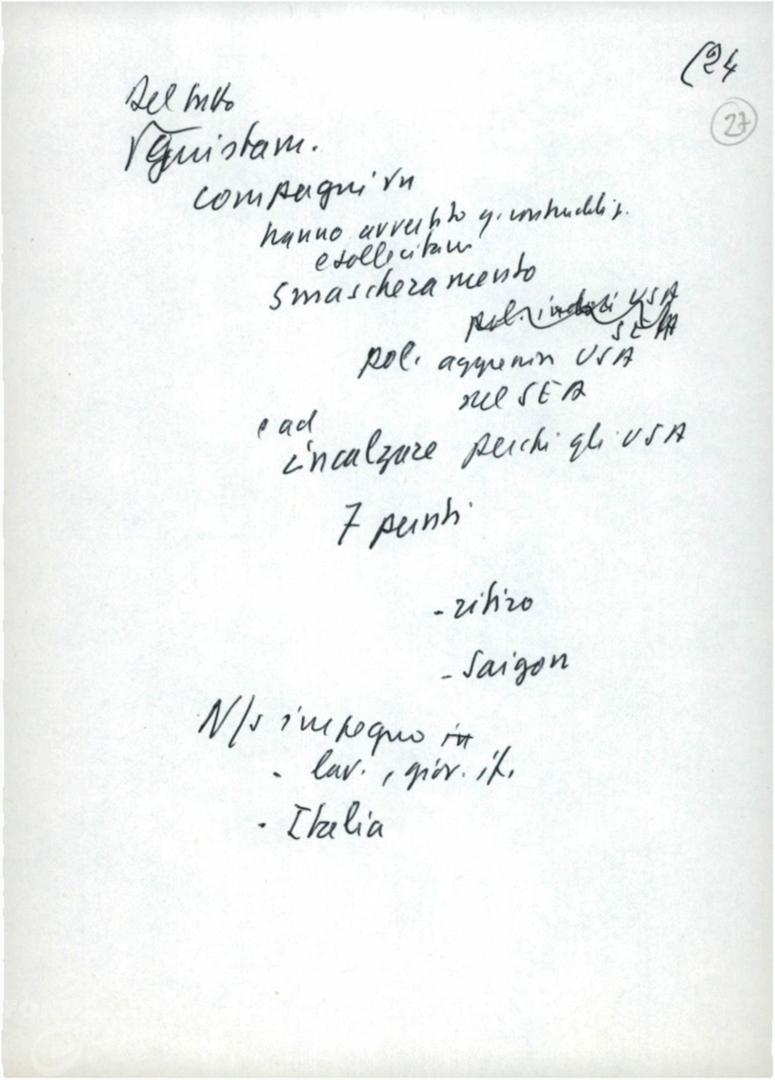 (24
27
Del tutto
compagni vn
hanno avvertito
e sollecitano
smascheramento
pol. USA
SEA
pol. aggressiva USA
nel SEA
e ad
incalzare perché gli USA
7 punti
- ritiro
- Saigon
N/s impegno in
- lav., giov. it.
- Italia